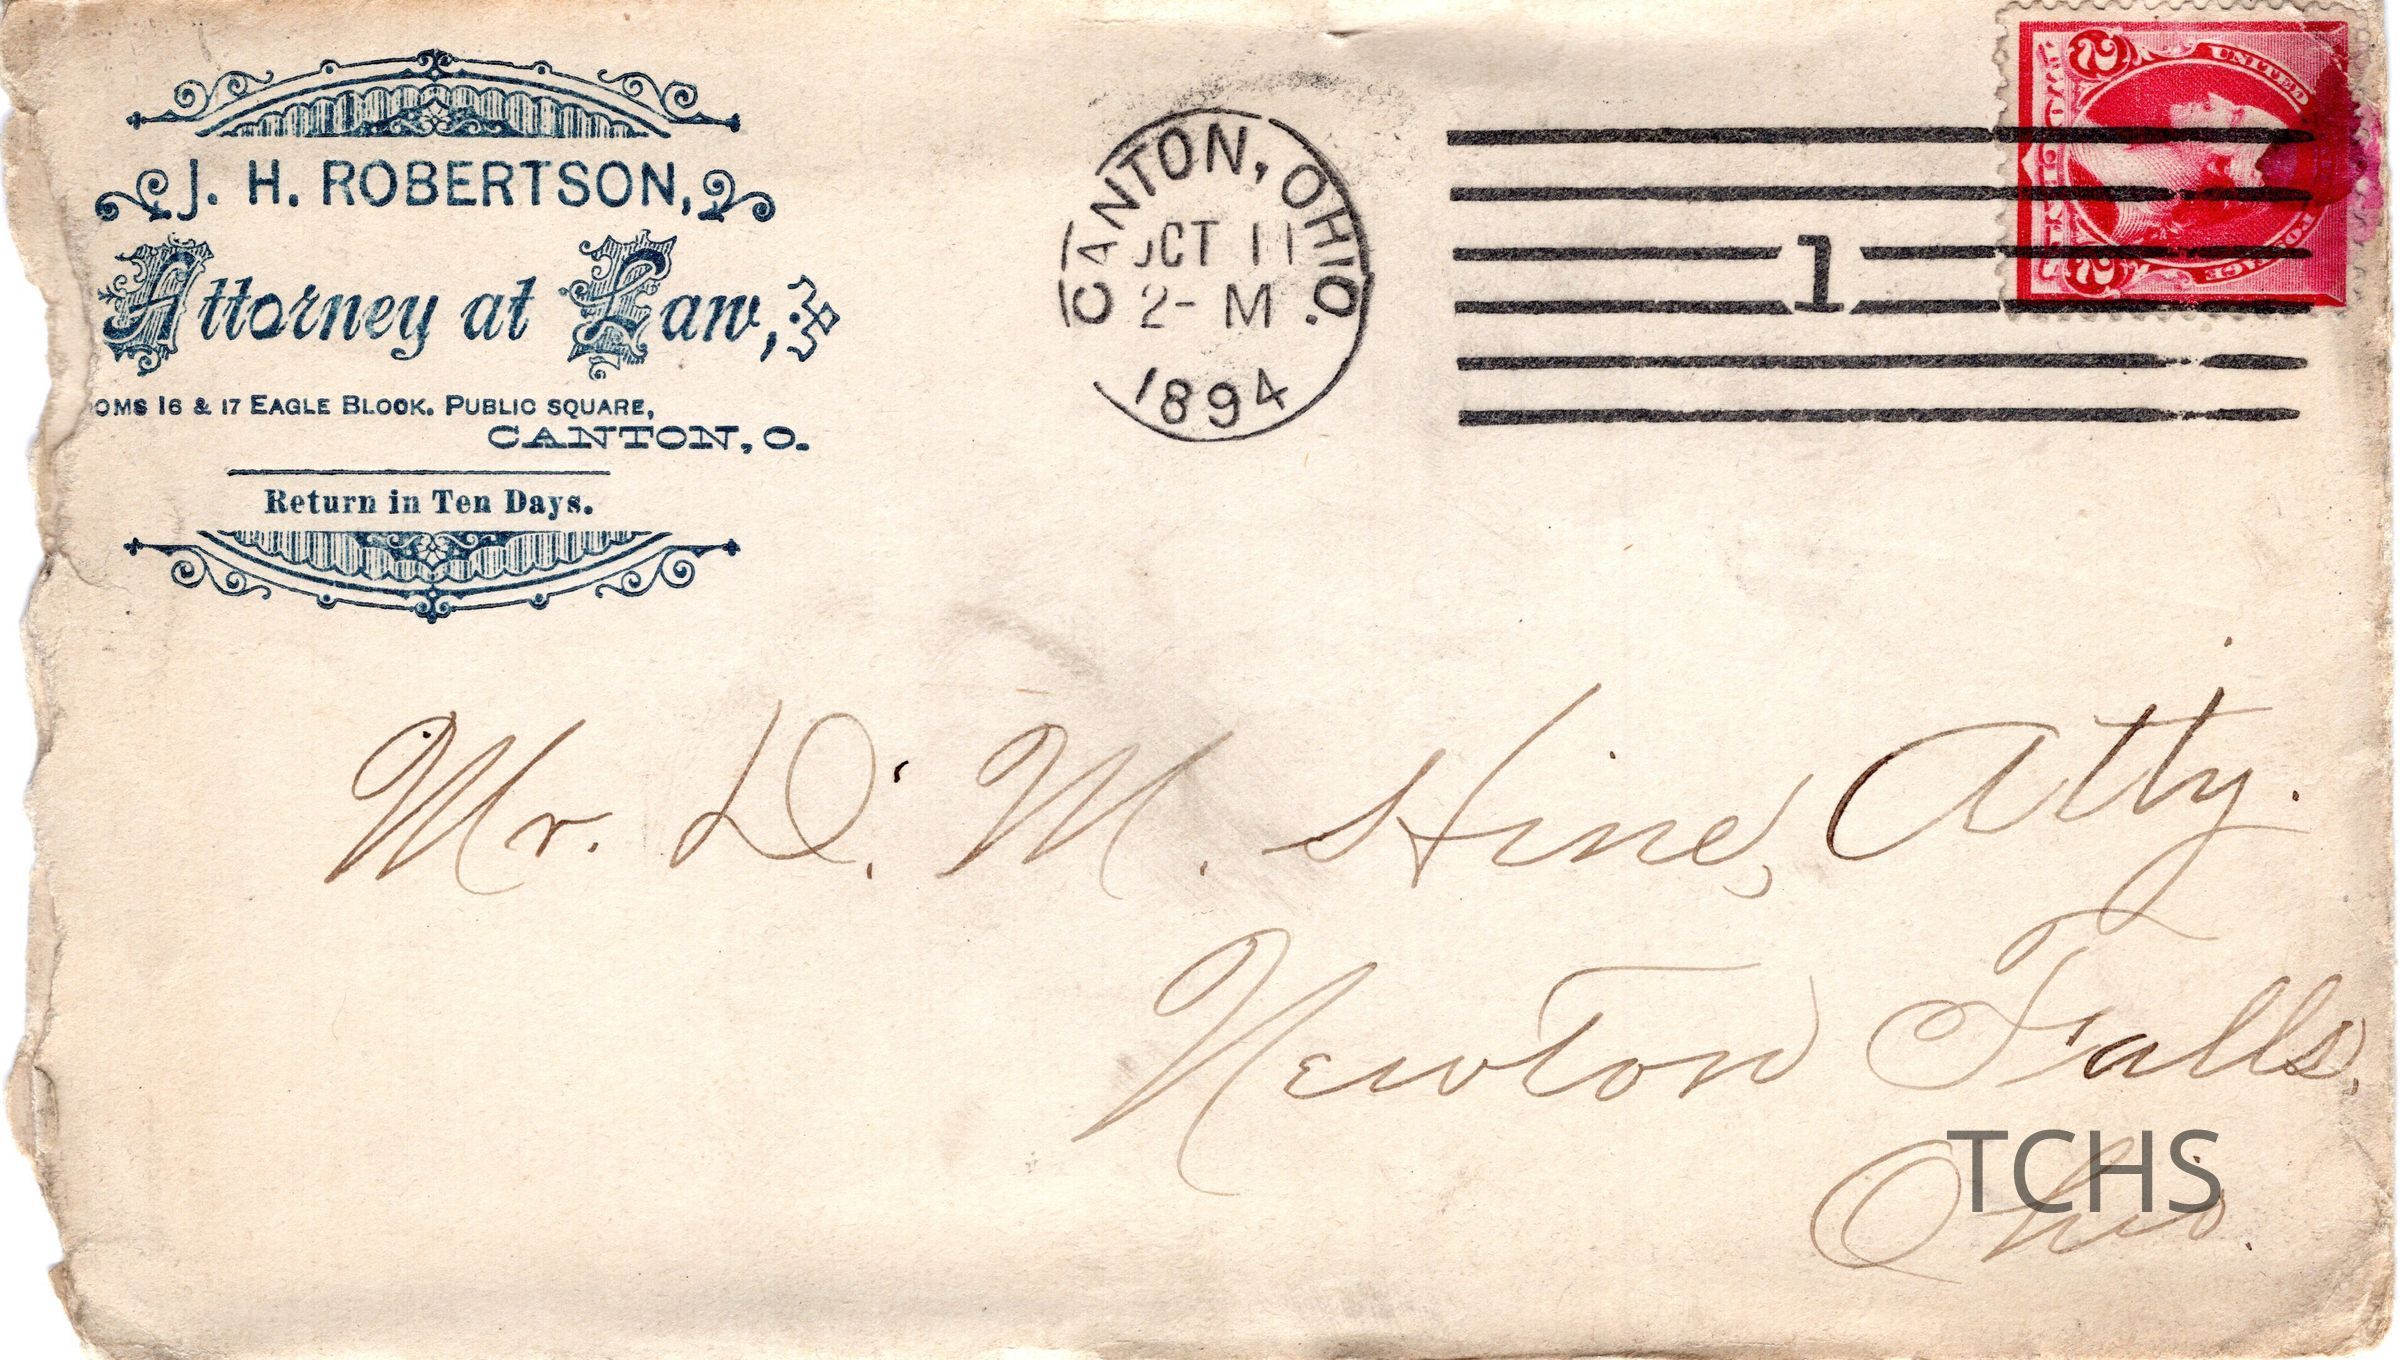 J. H. ROBERTSON,
Attorney at Law,
OMS 16 & 17 EAGLE BLOCK. PUBLIC SQUARE,
CANTON, O.
Return in Ten Days.
CANTON, OHIO.
OCT 11
2- M
1894
1
2 UNITED
POSTAGE 2
Mr. D. M. Hine, Atty.
Newton Falls,
Ohio.
TCHS